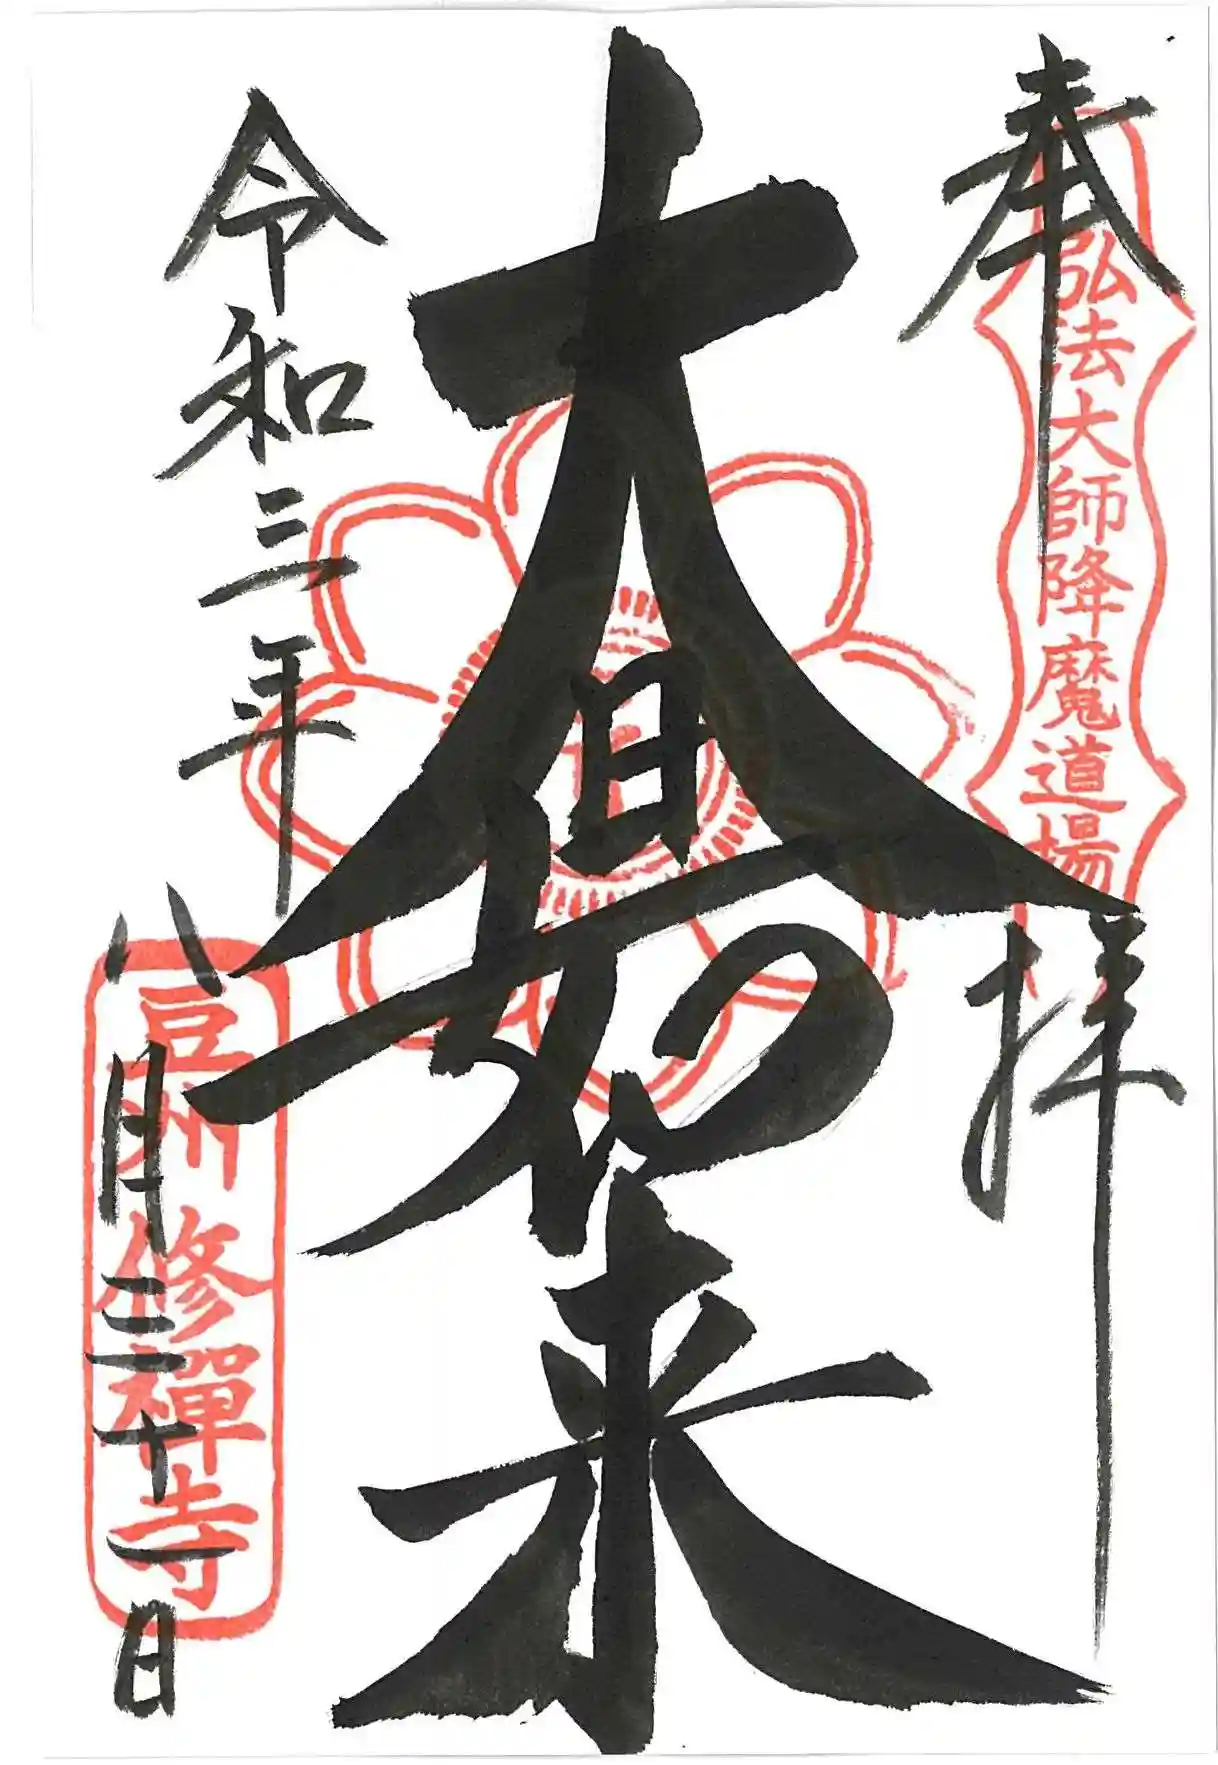 奉拝
弘法大師降魔道場
大日如来
令和三年
八月二十一日
豆州修禪寺